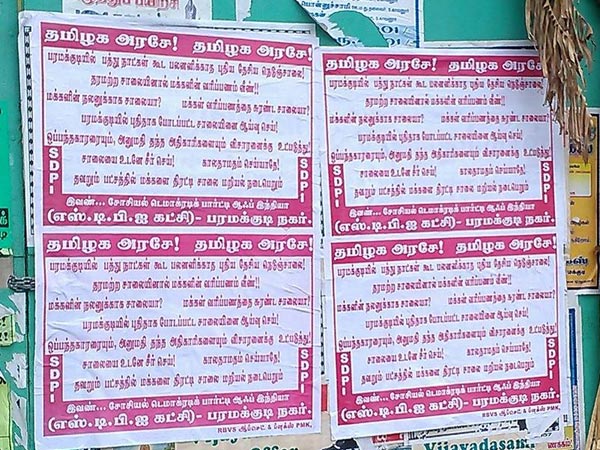 பொன்னுச்சாமி
தமிழக அரசே! தமிழக அரசே!
பரமக்குடியில் பத்து நாட்கள் கூட பலனளிக்காத புதிய தேசிய நெடுஞ்சாலை!
தரமற்ற சாலையினால் மக்களின் வரிப்பணம் வீண்!!
மக்களின் நலனுக்காக சாலையா? மக்கள் வரிப்பணத்தை சுரண்ட சாலையா?
பரமக்குடியில் புதிதாக போடப்பட்ட சாலையினை ஆய்வு செய்!
ஒப்பந்தகாரரையும், அனுமதி தந்த அதிகாரிகளையும் விசாரனைக்கு உட்படுத்து!
சாலையை உடனே சீர் செய்! காலதாமதம் செய்யாதே!
தவறும் பட்சத்தில் மக்களை திரட்டி சாலை மறியல் நடைபெறும்
SDPI
SDPI
இவண்... சோசியல் டெமாக்ரடிக் பார்ட்டி ஆஃப் இந்தியா
(எஸ்.டி.பி.ஐ கட்சி)- பரமக்குடி நகர்.
தமிழக அரசே! தமிழக அரசே!
பரமக்குடியில் பத்து நாட்கள் கூட பலனளிக்காத புதிய தேசிய நெடுஞ்சாலை!
தரமற்ற சாலையினால் மக்களின் வரிப்பணம் வீண்!!
மக்களின் நலனுக்காக சாலையா? மக்கள் வரிப்பணத்தை சுரண்ட சாலையா?
பரமக்குடியில் புதிதாக போடப்பட்ட சாலையினை ஆய்வு செய்!
ஒப்பந்தகாரரையும், அனுமதி தந்த அதிகாரிகளையும் விசாரனைக்கு உட்படுத்து!
சாலையை உடனே சீர் செய்! காலதாமதம் செய்யாதே!
தவறும் பட்சத்தில் மக்களை திரட்டி சாலை மறியல் நடைபெறும்
SDPI
SDPI
இவண்... சோசியல் டெமாக்ரடிக் பார்ட்டி ஆஃப் இந்தியா
(எஸ்.டி.பி.ஐ கட்சி)- பரமக்குடி நகர்.
தமிழக அரசே! தமிழக அரசே!
பரமக்குடியில் பத்து நாட்கள் கூட பலனளிக்காத புதிய தேசிய நெடுஞ்சாலை!
தரமற்ற சாலையினால் மக்களின் வரிப்பணம் வீண்!!
மக்களின் நலனுக்காக சாலையா? மக்கள் வரிப்பணத்தை சுரண்ட சாலையா?
பரமக்குடியில் புதிதாக போடப்பட்ட சாலையினை ஆய்வு செய்!
ஒப்பந்தகாரரையும், அனுமதி தந்த அதிகாரிகளையும் விசாரனைக்கு உட்படுத்து!
சாலையை உடனே சீர் செய்! காலதாமதம் செய்யாதே!
தவறும் பட்சத்தில் மக்களை திரட்டி சாலை மறியல் நடைபெறும்
SDPI
SDPI
இவண்... சோசியல் டெமாக்ரடிக் பார்ட்டி ஆஃப் இந்தியா
(எஸ்.டி.பி.ஐ கட்சி)- பரமக்குடி நகர்.
தமிழக அரசே! தமிழக அரசே!
பரமக்குடியில் பத்து நாட்கள் கூட பலனளிக்காத புதிய தேசிய நெடுஞ்சாலை!
தரமற்ற சாலையினால் மக்களின் வரிப்பணம் வீண்!!
மக்களின் நலனுக்காக சாலையா? மக்கள் வரிப்பணத்தை சுரண்ட சாலையா?
பரமக்குடியில் புதிதாக போடப்பட்ட சாலையினை ஆய்வு செய்!
ஒப்பந்தகாரரையும், அனுமதி தந்த அதிகாரிகளையும் விசாரனைக்கு உட்படுத்து!
சாலையை உடனே சீர் செய்! காலதாமதம் செய்யாதே!
தவறும் பட்சத்தில் மக்களை திரட்டி சாலை மறியல் நடைபெறும்
SDPI
SDPI
இவண்... சோசியல் டெமாக்ரடிக் பார்ட்டி ஆஃப் இந்தியா
(எஸ்.டி.பி.ஐ கட்சி)- பரமக்குடி நகர்.
Vijayadasami